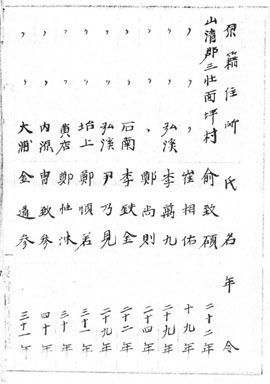 原籍住所 氏名 年令
山清郡三壮面坪村 俞致碩 二十二年
〃 〃 〃 崔相佑 十九年
〃 〃 弘溪 李萬九 二十九年
〃 〃 〃 鄭尚則 二十四年
〃 〃 石南 李鉄金 二十二年
〃 〃 弘溪 尹乃見 二十九年
〃 〃 坮上 鄭順若 三十二年
〃 〃 黄店 鄭 三十年
〃 〃 内源 曺致蔘 四十年
〃 〃 大浦 金道蔘 三十一年